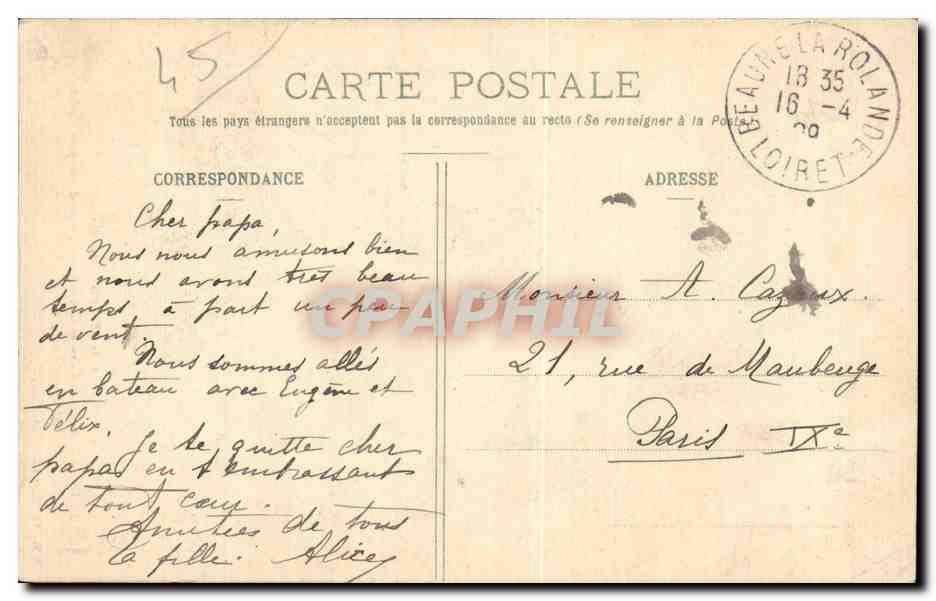 45
CARTE POSTALE
Tous les pays étrangers n'acceptent pas la correspondance au recto (Se renseigner à la Poste
BEAUNE LA ROLANDE
18 35
16 -4
09
LOIRET
CORRESPONDANCE
Cher papa,
Nous nous amusons bien
et nous avons très beau
temps, à part un peu
de vent.
Nous sommes allés
en bateau avec Eugène et
Félix.
Je te quitte cher
papa en t'embrassant
de tout cœur.
Amitiés de tous
ta fille. Alice
ADRESSE
Monsieur A.
21, rue de Maubeuge
Paris IXe
CPAPHIL